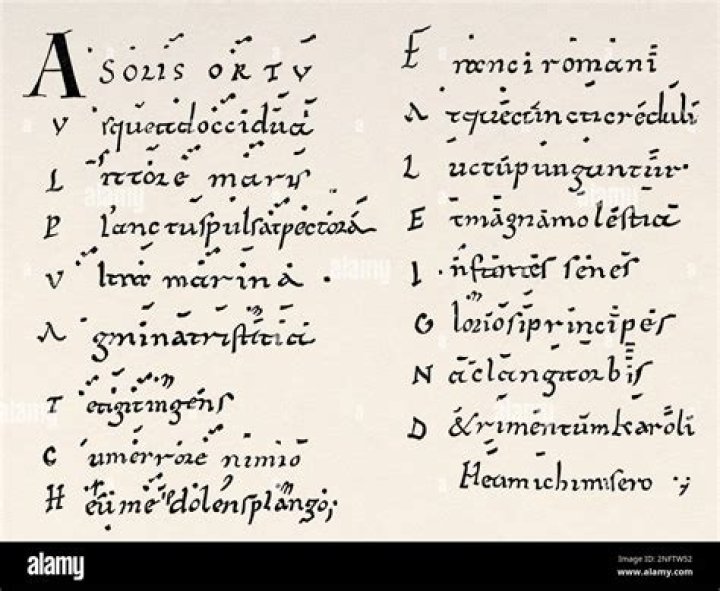 A SOLIS ORTU
V sque ad occidua
L ittore maris
P lanctus pulsat pectora
V ltra marina
A gmina tristitia
T etigit ingens
C um errore nimio
H eu me dolens plango;
F ranci romani
A tque cuncti creduli
L uctu punguntur.
E t magna molestia
I nfantes senes
G loriosi principes
N a clangit orbis
D &rimentum karoli
Heu mi chi misero
alamy
Image ID: 2NFTW52
www.alamy.com